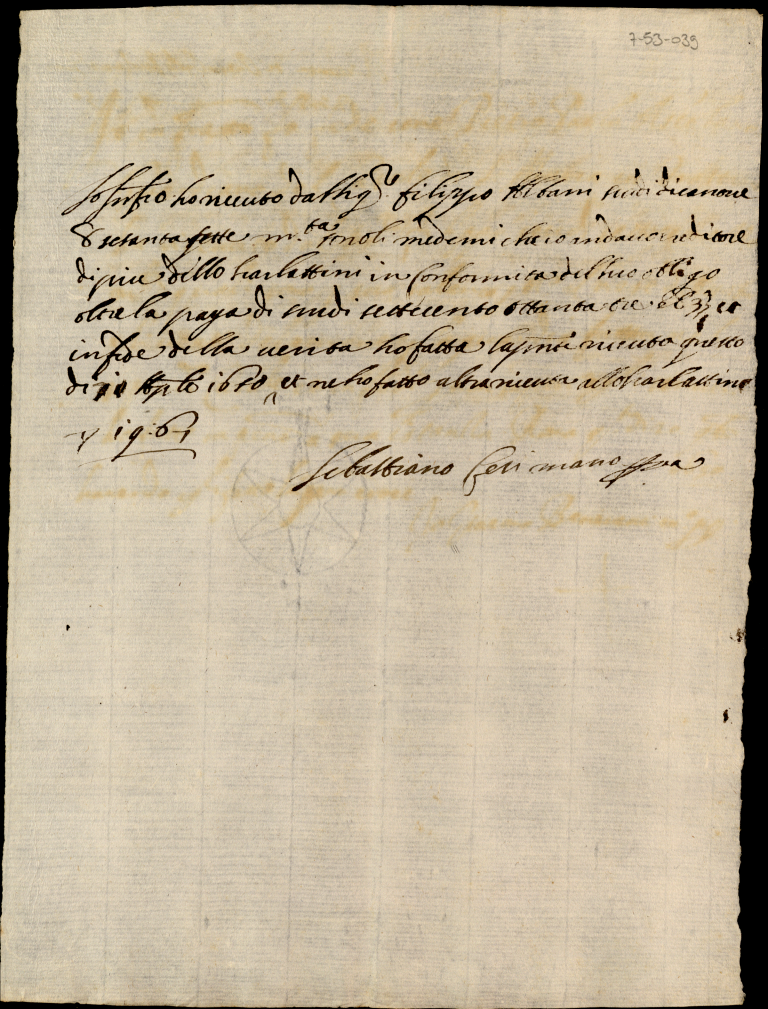 7-53-039
Io infrō ho riceuto dal Sigre Filippo Albani scudi dicanoue
& setanta sette m.ta sono li medemi che io andauo creditore
di piu dello Scarlattini in conformita del suo obligo
oltre la paga di scudi settecento ottanta tre et
in fede della uerita ho fatta la pnte riceuta questo
di Aple 1650 et ne ho fatto altra riceuta allo Scarlattino
19:67
Sebastiano Ceri mano ppa